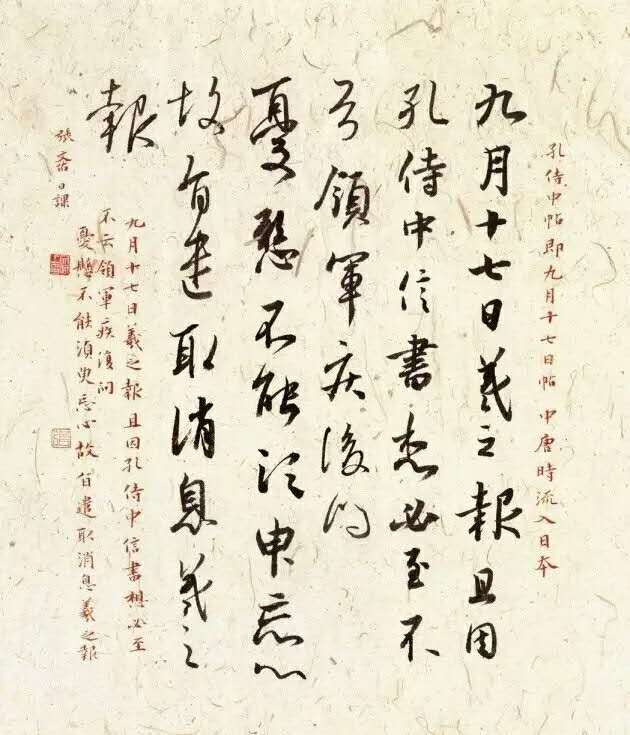 孔侍中帖即九月十七日帖中唐時流入日本
九月十七日羲之報且因
孔侍中信書想必至不
知領軍疾後問
憂懸不能須臾忘心
故旨遣取消息羲之
報
九月十七日羲之報且因孔侍中信書想必至
不知領軍疾後问
憂懸不能須臾忘心故旨遣取消息羲之報
張日課